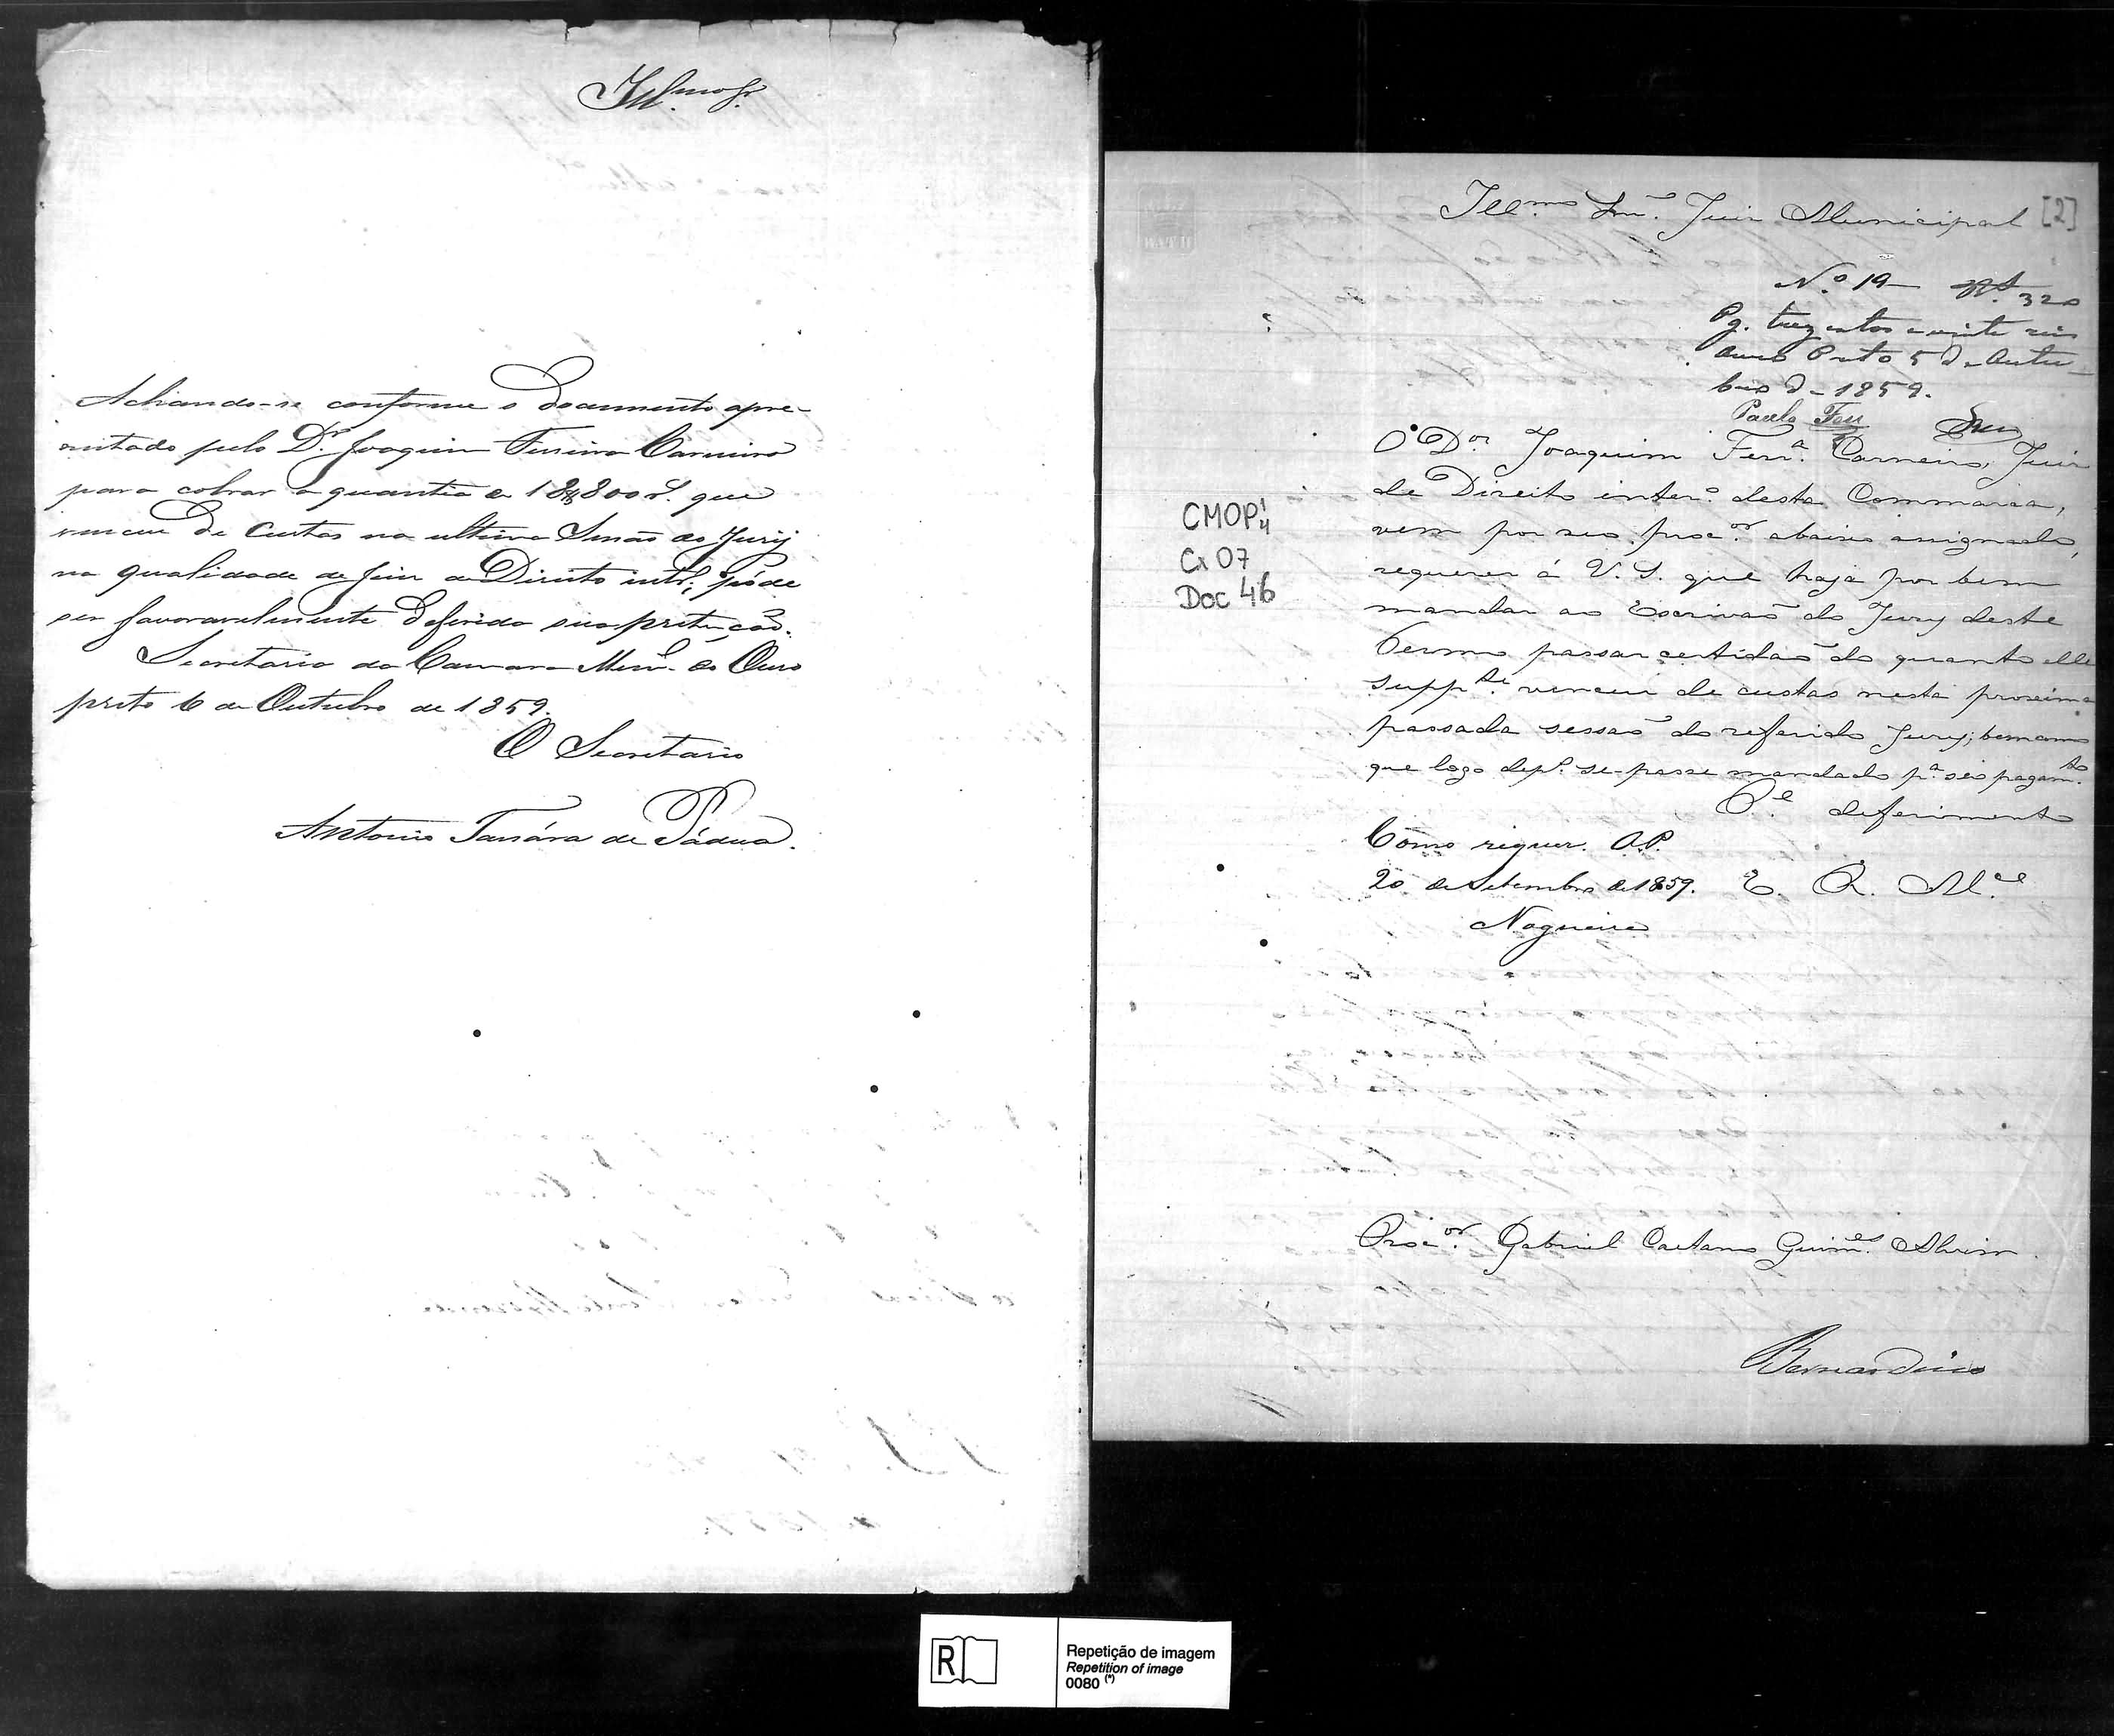 Ill.mo Sr.
Achando-se conforme o documento apre-
sentado pelo Dr. Joaquim Ferreira Carneiro
para cobrar a quantia de 18$800 rs. que
venceu de Custas na ultima Sessão do Jury
na qualidade de Juiz de Direito intr.º, póde
ser favoravelmente deferida sua pretenção.
Secretaria da Camara Mun.al do Ouro
preto 6 de Outubro de 1859.
O Secretario
Antonio de Pádua.
Ill.mo Snr. Juiz Municipal [2]
N.º 19 320
Pg. trezentos e vinte reis
Ouro Preto 5 de Outu-
bro de 1859.
Paula
O Dor. Joaquim Ferr.ª Carneiro, Juiz
de Direito inter.º desta Commarca,
vem por seo Proc.or abaixo assignado,
requerer á V. S. que haja por bem
mandar ao Escrivão do Jury deste
Termo passar certidão do quanto elle
Supp.te venceu de custas nesta proxima
passada sessão do referido Jury; bem como
que logo dep.s se-passe mandado p.ª seo pagam.to
P.e deferimento
Como requer. O.P.
20 de Setembro de 1859. E. R. M.ce
Nogueira
CMOP
Cx 07
Doc 46
Proc.or Gabriel Caetano Guim.es Alvim
Bernardino
R
Repetição de imagem
Repetition of image
0080 (*)